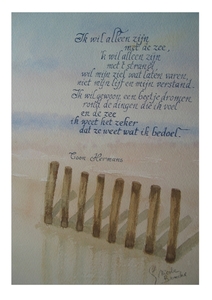 Ik wil alleen zijn
met de zee,
ik wil alleen zijn
met 't strand,
wil mijn ziel wat laten varen,
niet mijn lijf en mijn verstand.
Ik wil gewoon een beetje dromen
rond de dingen die ik voel
en de zee
ik weet het zeker
dat ze weet wat ik bedoel.
Toon Hermans